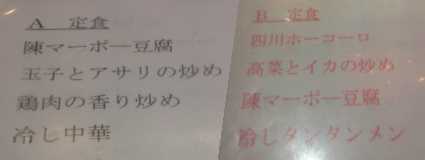 A 定食
陳マーボー豆腐
玉子とアサリの炒め
鶏肉の香り炒め
冷し中華
B 定食
四川ホーコーロ
高菜とイカの炒め
陳マーボー豆腐
冷しタンタンメン